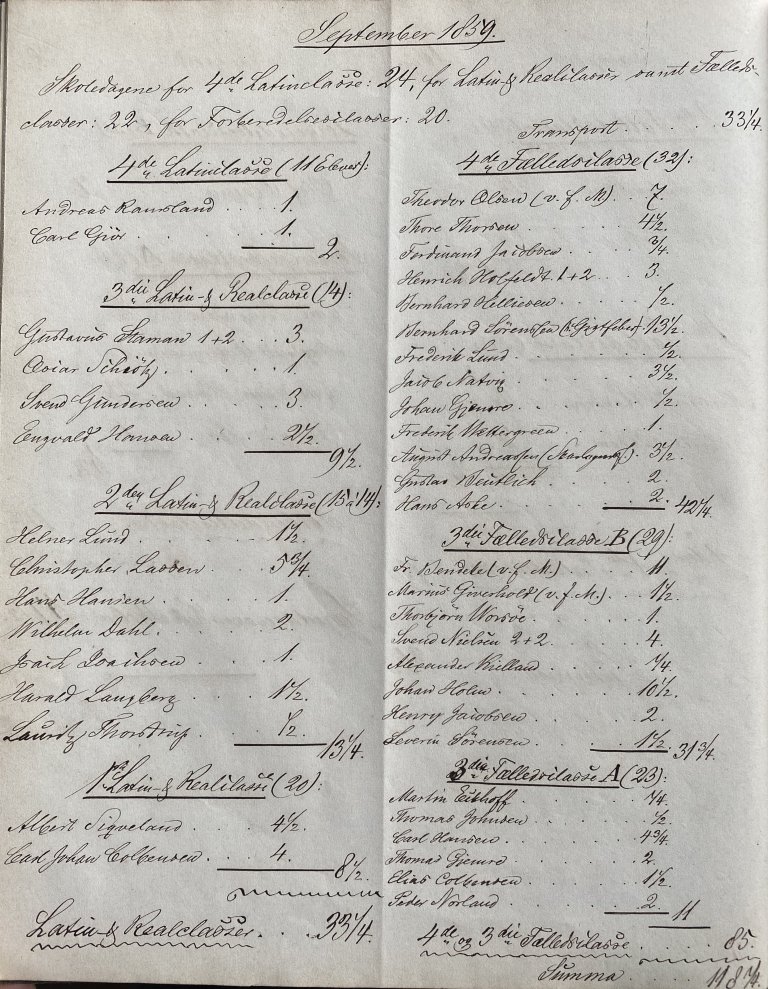 September 1859.
Skoledagene for 4de Latinclasse: 24, for Latin- & Realclasser samt Fælleds-
classer: 22, for Forberedelsesclasser: 20.
4de Latinclasse (11 Elever):
Andreas Ramsland . . 1.
Carl Giör . . . 1.
2.
3die Latin- & Realclasse (14):
Gustavus Flaman 1+2 . . . 3.
Oscar Schiötz . . . 1.
Svend Gundersen . . . 3.
Engvald Hansen . . . 2 1/2.
9 1/2.
2den Latin- & Realclasse (15 à 14):
Helner Lund . . . 1 1/2.
Christopher Lassen . . . 5 3/4.
Hans Hansen . . . 1.
Wilhelm Dahl . . . 2.
Isach Isachsen . . . 1.
Harald Langberg . . . 1 1/2.
Lauritz Thorstrup . . . 1/2.
13 1/4.
1ste Latin- & Realclasse (20):
Albert Sigveland . . . 4 1/2.
Carl Johan Colbensen . . . 4.
8 1/2.
Latin- & Realclasser . . . 33 1/4.
Transport . . . 33 1/4.
4de Fælledsclasse (32):
Theodor Olsen (v. f. M) . . 7.
Thore Thorsen . . . 4 1/2.
Ferdinand Jacobsen . . . 3/4.
Henrich Holfeldt 1+2 . . 3.
Bernhard Helliesen . . . 1/2.
Bernhard Sörensen (Gigtfeber) 13 1/2.
Frederik Lund . . . 1/2.
Jacob Natvig . . . 3 1/2.
Johan Gjemre . . . 1/2.
Frederik Wettergreen . . . 1.
August Andreassen . . 3 1/2.
Gustav Beutlich . . . 2.
Hans Aske . . . 2.
42 1/4.
3die Fælledsclasse B (29):
Fr. Bendeke (v. f. M.) . . . 11
Marius Giverhold (v. f. M.) . . . 1 1/2.
Thorbjörn Worsöe . . . 1.
Svend Nielsen 2+2 . . . 4.
Alexander Kielland . . . 1/4.
Johan Holm . . . 10 1/2.
Henry Jacobsen . . . 2.
Severin Sörensen . . . 1 1/2.
31 3/4.
3die Fælledsclasse A (23):
Martin Eckhoff . . . 1/4.
Thomas Johnsen . . . 1/2.
Carl Hansen . . . 4 3/4.
Thomas Gjemre . . . 2.
Elias Colbensen . . . 1 1/2.
Peder Norland . . . 2.
11
4de og 3die Fælledsclasse . . . 85.
Summa . . . 118 1/4.